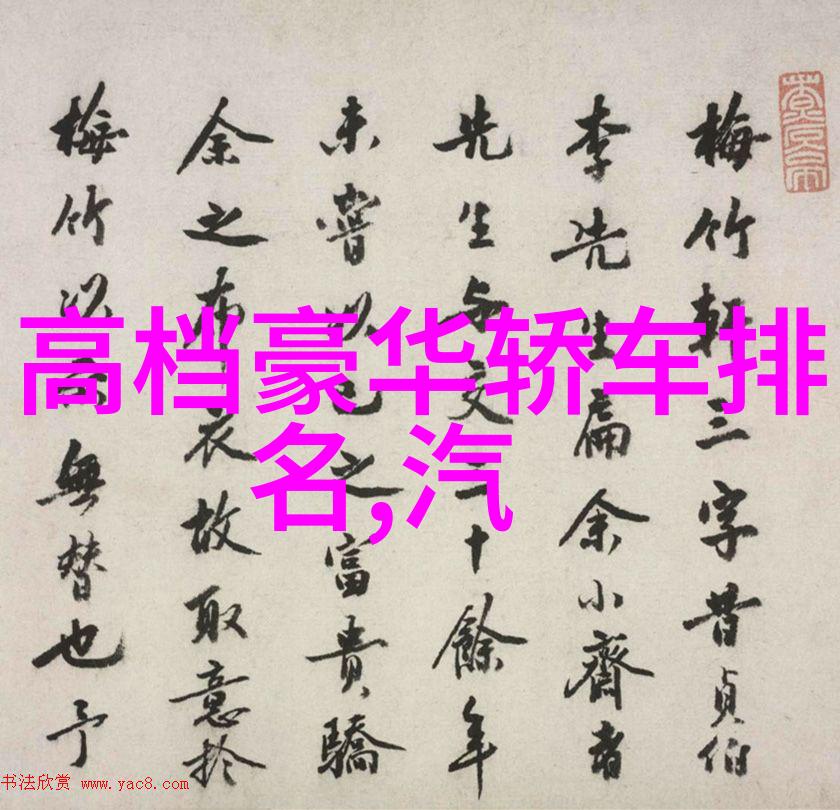 高档豪华轿车排
名,汽
梅竹軒三字昔貞伯
李先生扁余小齋者
先生与交二十餘年
未嘗以己之富貴驕
余之布衣故取意於
梅竹況亦無替也予
书法欣赏 www.yac8.com